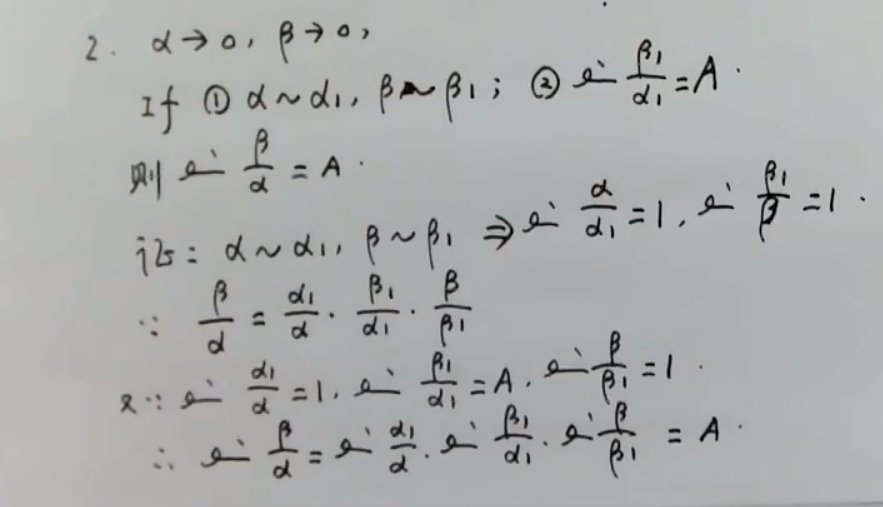 2. α→0, β→0,
If ① α~α₁, β~β₁; ② lim β₁/α₁=A.
则 lim β/α = A.
证: α~α₁, β~β₁ ⇒ lim α/α₁=1, lim β₁/β=1.
∵ β/α = α₁/α · β₁/α₁ · β/β₁
又∵ lim α₁/α=1, lim β₁/α₁=A, lim β/β₁=1.
∴ lim β/α = lim α₁/α · lim β₁/α₁ · lim β/β₁ = A.